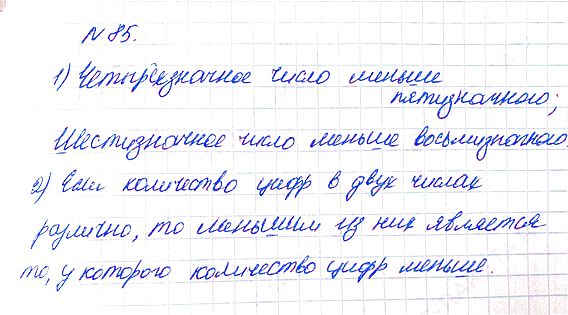 № 85.
1) Четырёхзначное число меньше
пятизначного;
Шестизначное число меньше восьмизначного.
2) Если количество цифр в двух числах
различно, то меньшим из них является
то, у которого количество цифр меньше.